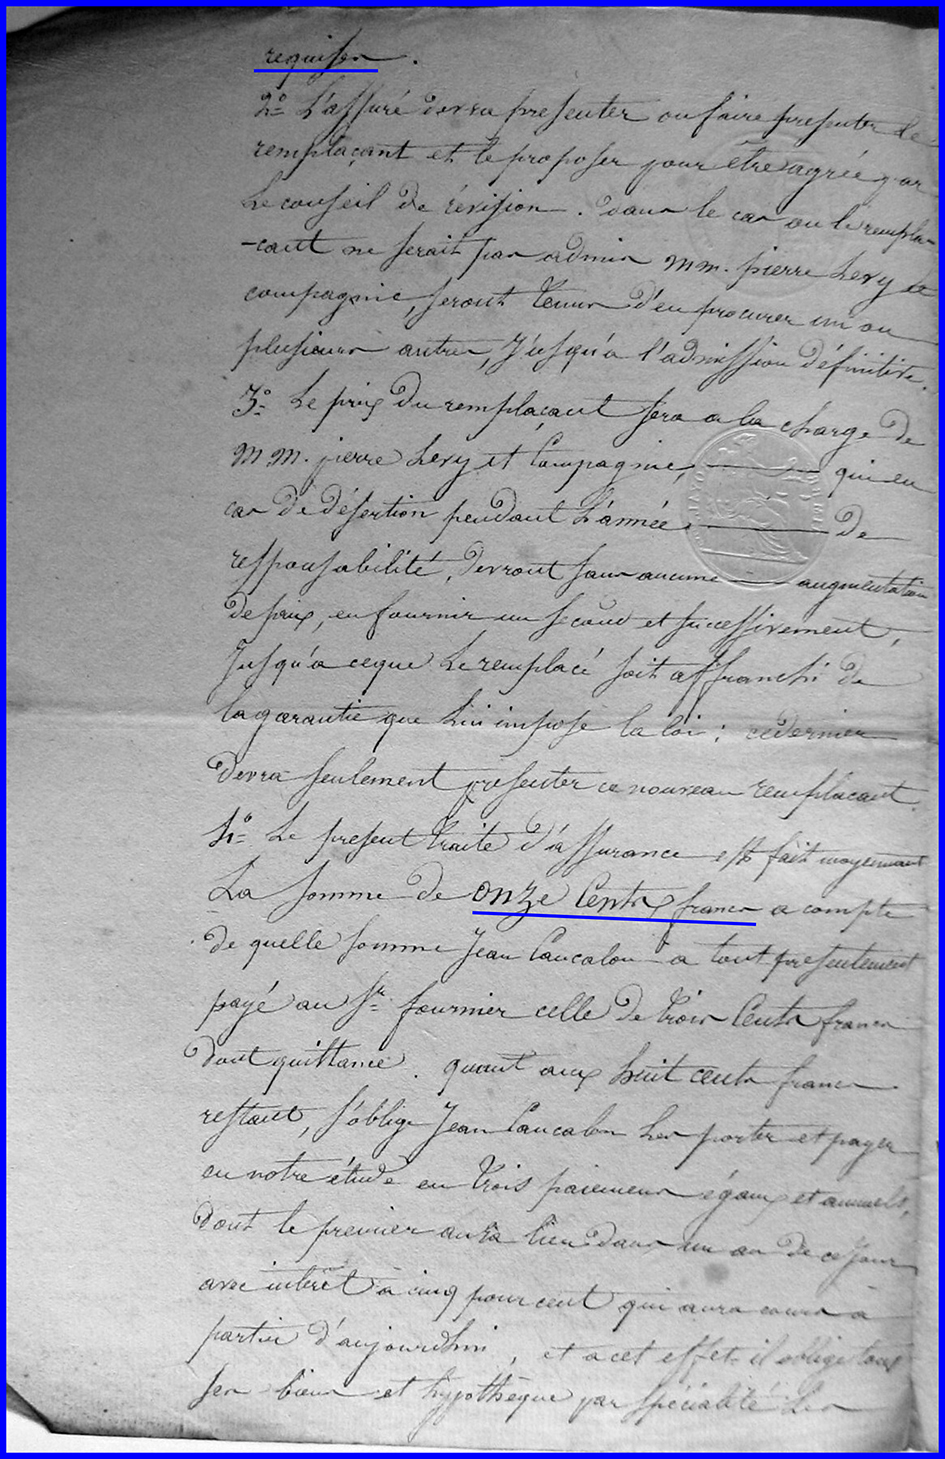 requises.
2° L'assuré devra presenter ou faire presenter le
remplaçant et le proposer pour être agréé par
Le conseil de révision. Dans le cas ou le rempla-
-cant ne serait pas admis MM. pierre Levy et
compagnie, seront tenus d'en procurer un ou
plusieurs autres, Jusqu'a l'admission définitive.
3° Le prix du remplaçant sera a la charge de
MM. pierre Levy et Compagnie, qui en
cas de désertion pendant L'année de
responsabilité, devront sans aucune augmentation
de prix, en fournir un second et successivement,
Jusqu'a ceque Le remplacé soit affranchi de
la garantie que Lui impose la loi; cedernier
devra seulement presenter ce nouveau remplacant.
4° Le present traité d'assurance est fait moyennant
La somme de onze Cents francs a compte
de quelle somme Jean Caucalon a tout presentement
payé au Sr fournier celle de trois Cents francs
dont quittance. quant aux huit cents francs
restant, s'oblige Jean Caucalon Les porter et payer
en notre étude en trois paiemens égaux et annuels,
dont le premier aura lieu dans un an de ce Jour
avec intérêt à cinq pour cent qui aura cours à
partir d'aujourdhui, et a cet effet il oblige tous
ses biens et hypothèque par spécialité Les